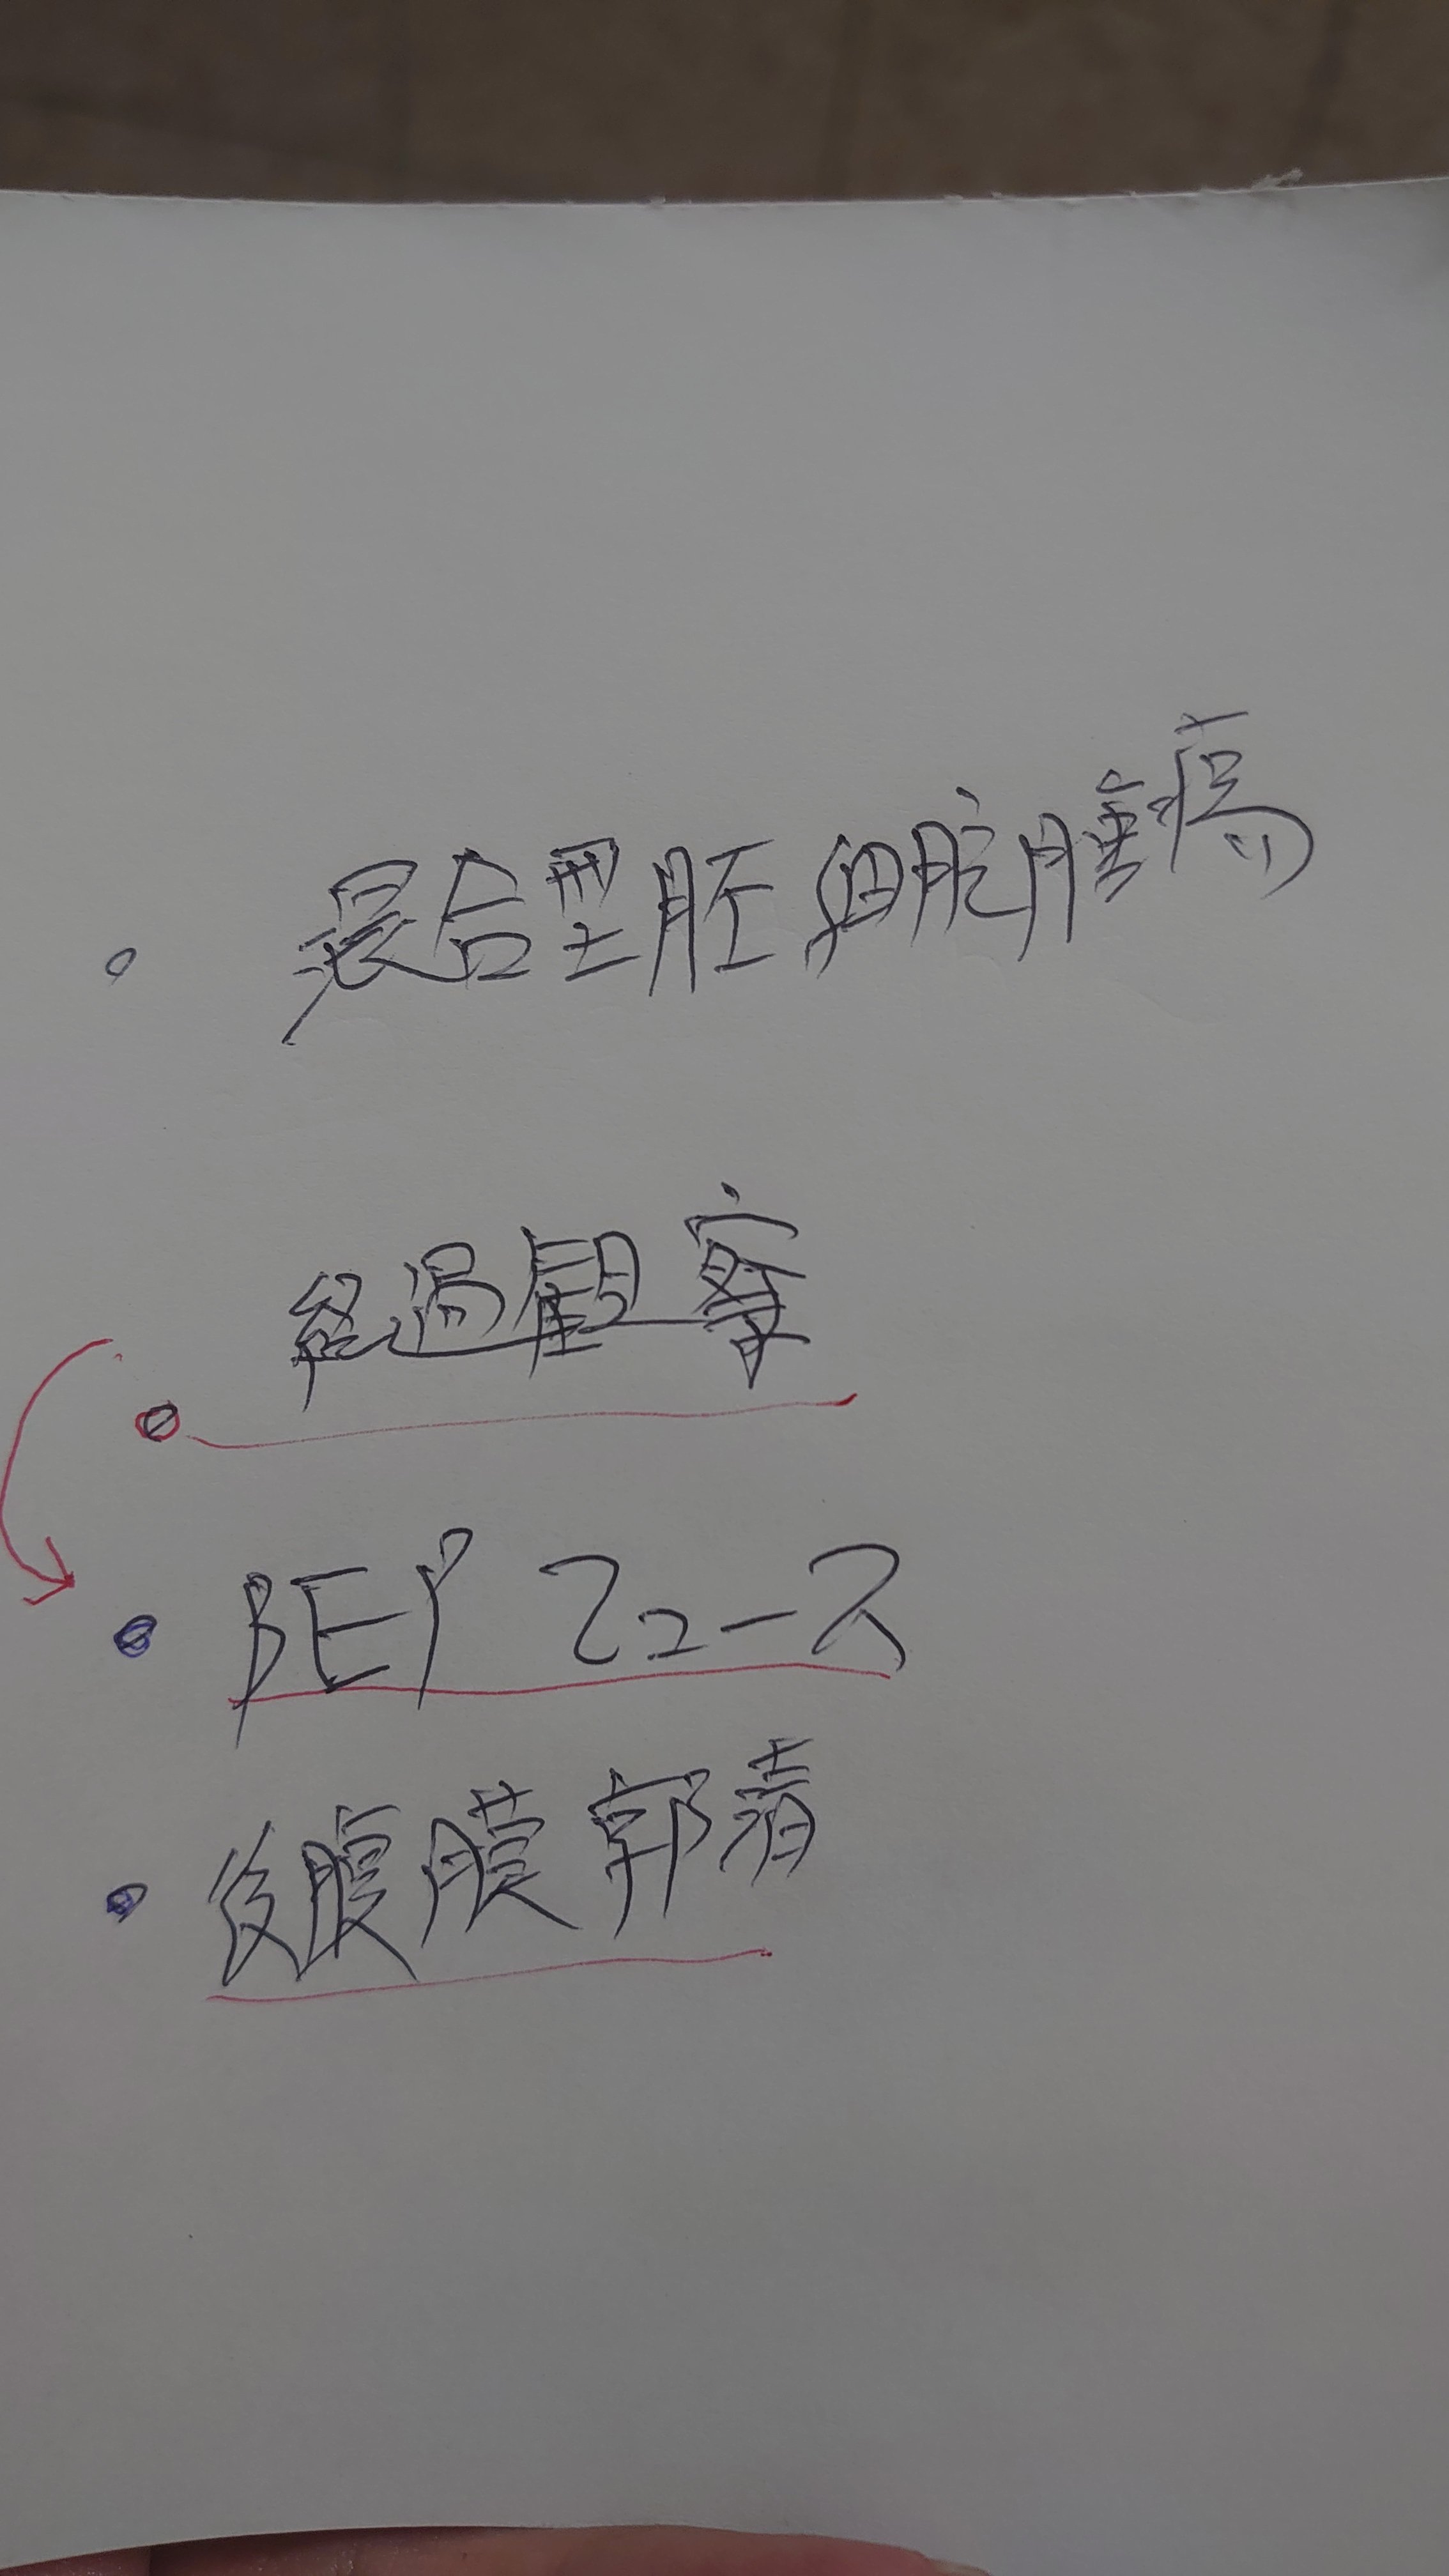 混合型胚細胞腫瘍
経過観察
BEP 2コース
後腹膜郭清